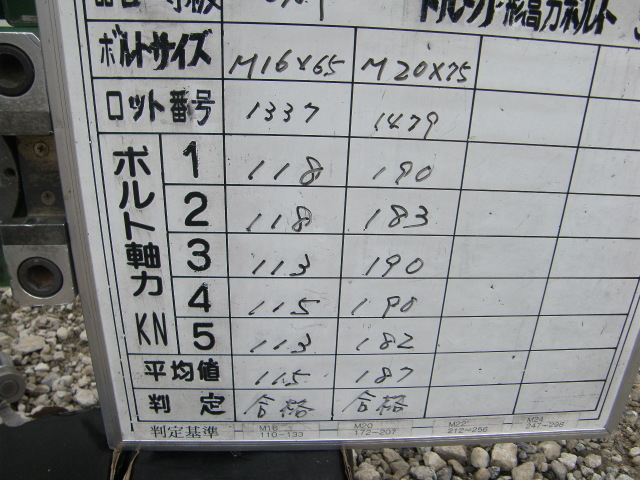 トルシア形高力ボルト
ボルトサイズ M16×65 M20×75
ロット番号 1337 1479
ボルト軸力 KN
1 118 190
2 118 183
3 113 190
4 115 190
5 113 182
平均値 115 187
判定 合格 合格
判定基準 M16 110~133 M20 172~207 M22 212~256 M24 247~298